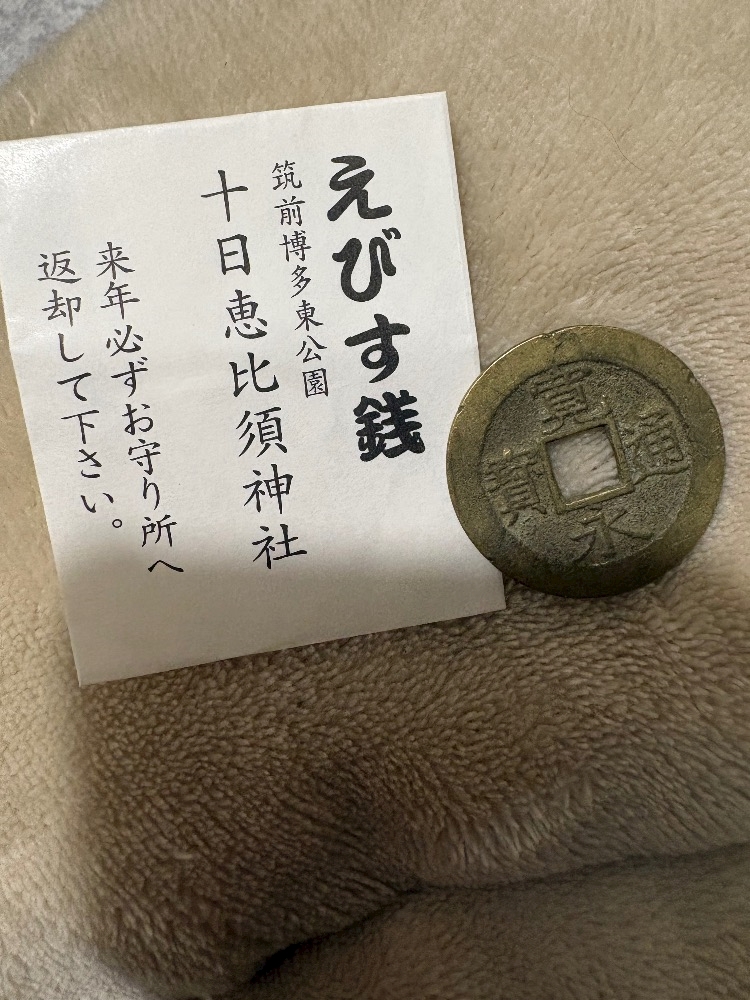 えびす銭
筑前博多東公園
十日恵比須神社
来年必ずお守り所へ
返却して下さい。
寛永通寳